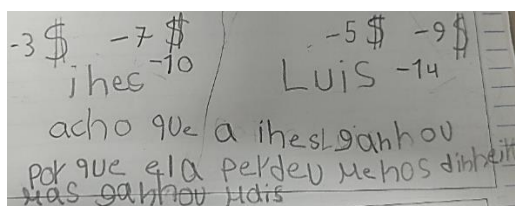 -3$ -7$ -5$ -9$
ihes -10 Luis -14
acho que a ihes ganhou
por que ela perdeu menos dinheit
mas ganhou mais